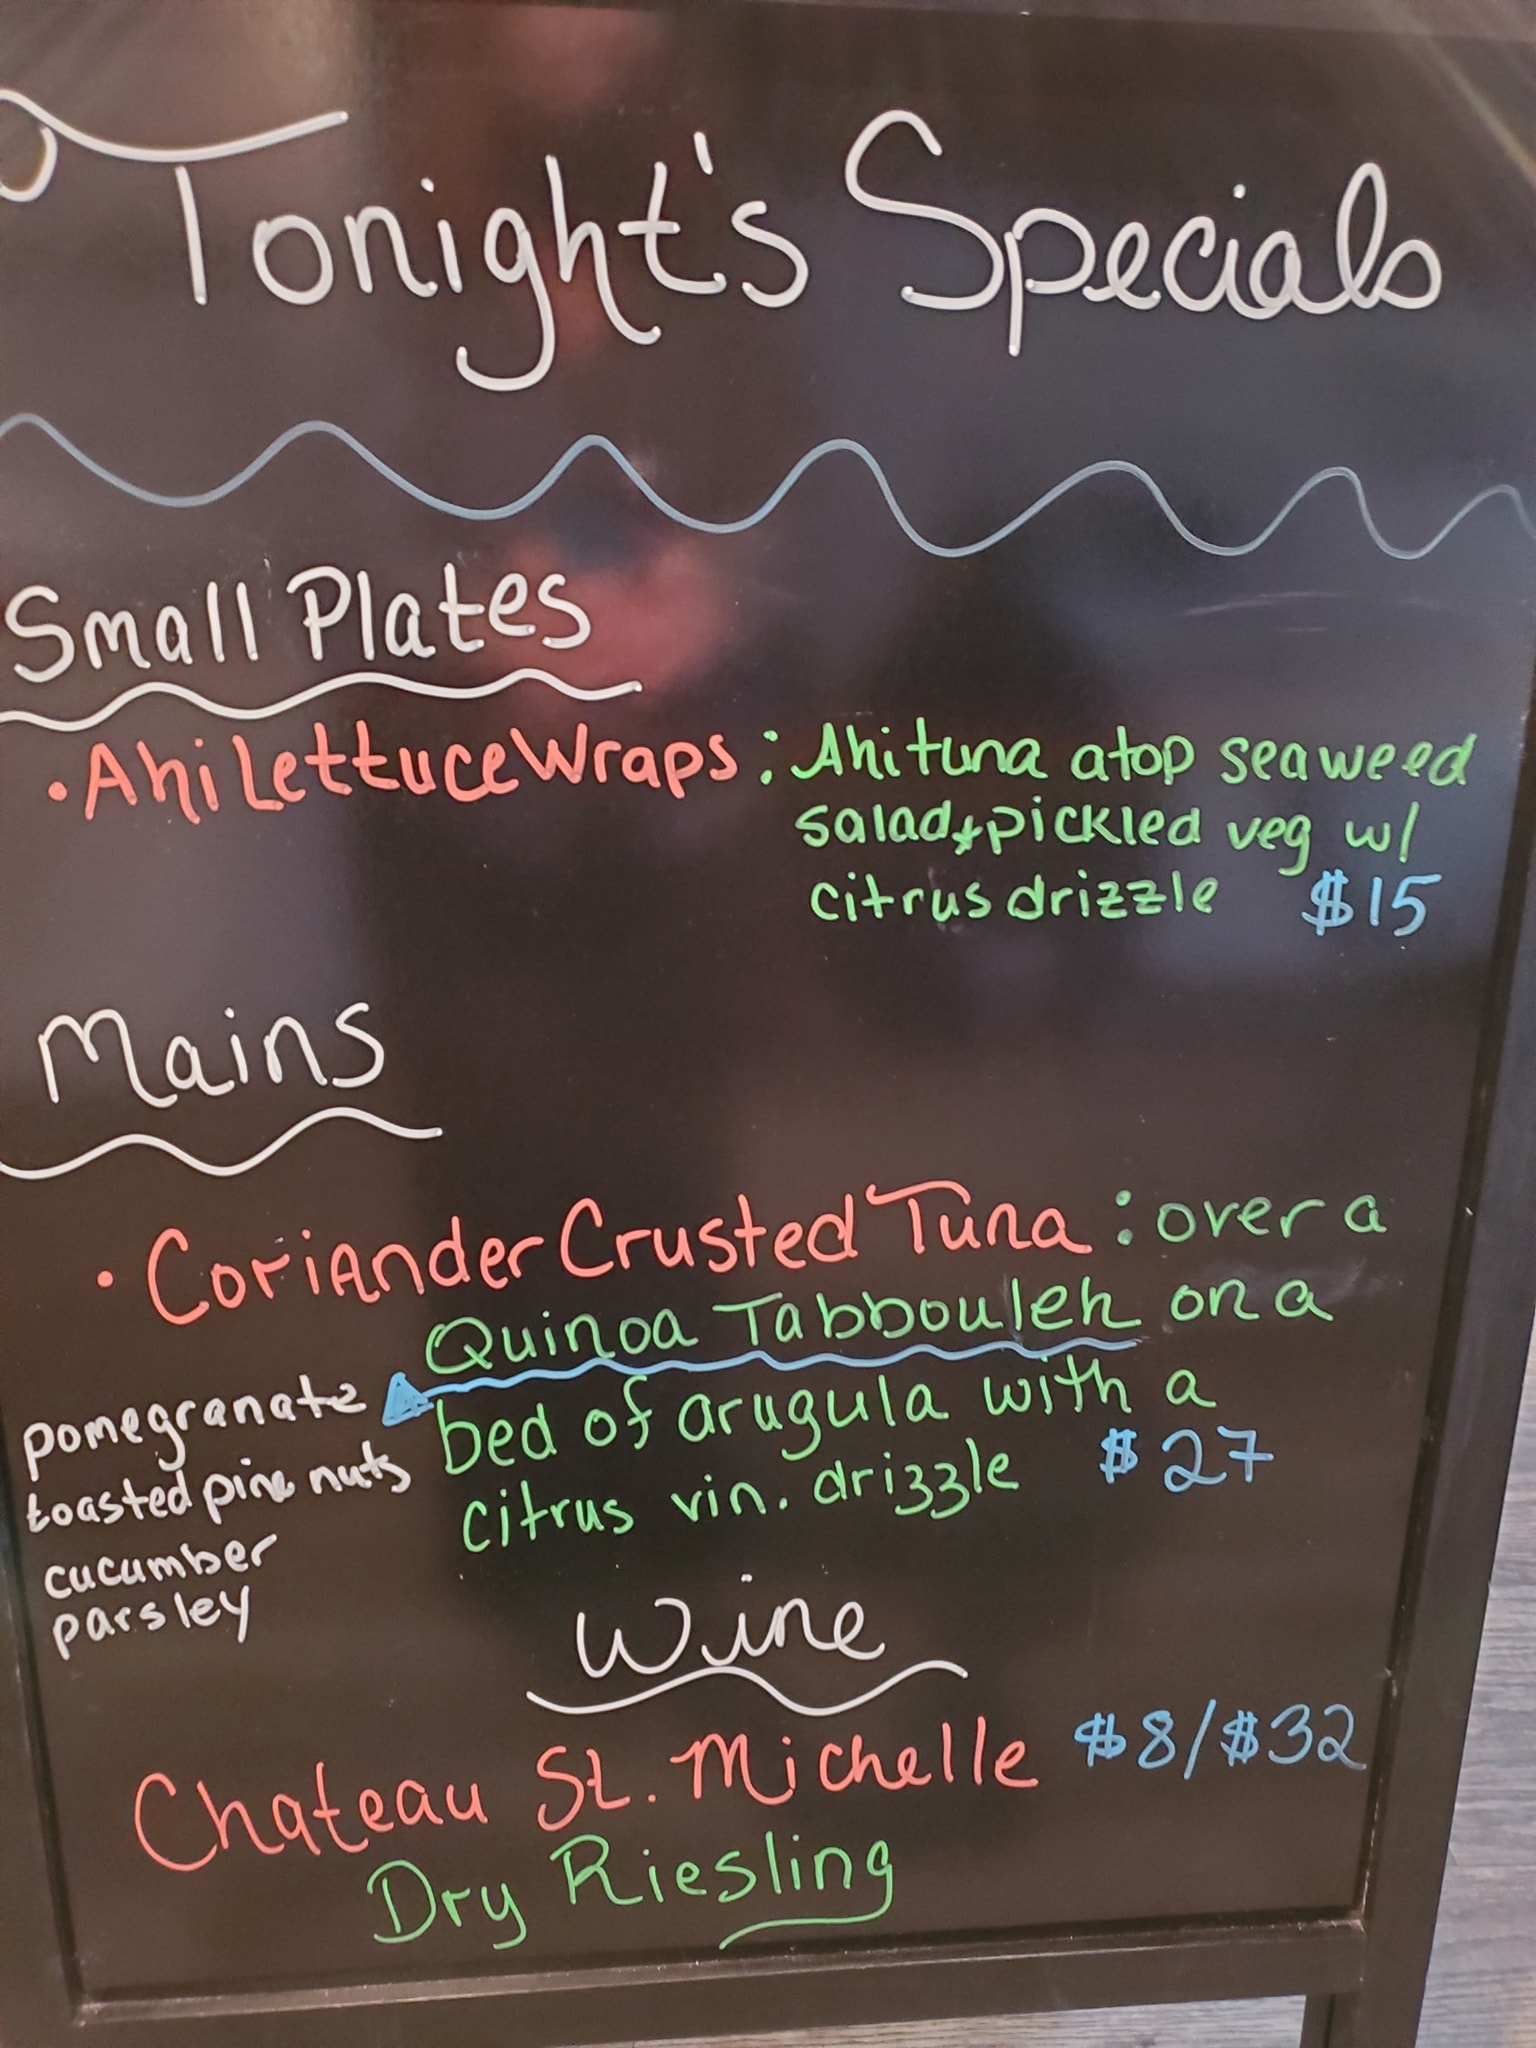 Tonight's Specials
Small Plates
• Ahi Lettuce Wraps : Ahi tuna atop seaweed
salad + pickled veg w/
citrus drizzle $15
Mains
• Coriander Crusted Tuna : over a
Quinoa Tabbouleh on a
bed of arugula with a
citrus vin. drizzle $27
pomegranate
toasted pine nuts
cucumber
parsley
Wine
Chateau St. Michelle $8/$32
Dry Riesling